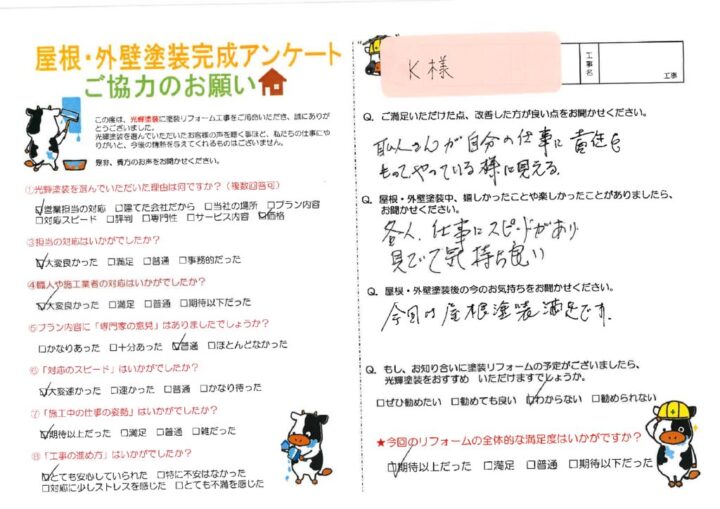 屋根・外壁塗装完成アンケート
ご協力のお願い
この度は、光輝塗装に塗装リフォーム工事をご用命いただき、誠にありがとうございました。
光輝塗装を選んでいただいたお客様の声を聴く事ほど、私たちの仕事にやりがいと、今後の情熱を与えてくれるものはございません。
是非、貴方のお声をお聞かせください。
①光輝塗装を選んでいただいた理由は何ですか?(複数回答可)
☑営業担当の対応 □建てた会社だから □当社の場所 □プラン内容
□対応スピード □評判 □専門性 □サービス内容 ☑価格
③担当の対応はいかがでしたか?
☑大変良かった □満足 □普通 □事務的だった
④職人や施工業者の対応はいかがでしたか?
☑大変良かった □満足 □普通 □期待以下だった
⑤プラン内容に「専門家の意見」はありましたでしょうか?
□かなりあった □十分あった ☑普通 □ほとんどなかった
⑥「対応のスピード」はいかがでしたか?
☑大変速かった □速かった □普通 □かなり待った
⑦「施工中の仕事の姿勢」はいかがでしたか?
☑期待以上だった □満足 □普通 □雑だった
⑧「工事の進め方」はいかがでしたか?
☑とても安心していられた □特に不安はなかった
□対応に少しストレスを感じた □とても不満を感じた
K様
工事名
工事
Q. ご満足いただけた点、改善した方が良い点をお聞かせください。
職人さんが自分の仕事に責任を
もってやっている様に見える。
Q. 屋根・外壁塗装中、嬉しかったことや楽しかったことがありましたら、
お聞かせください。
各人、仕事にスピードがあり
見ていて気持ち良い
Q. 屋根・外壁塗装後の今のお気持ちをお聞かせください。
今回の屋根塗装満足です。
Q. もし、お知り合いに塗装リフォームの予定がございましたら、
光輝塗装をおすすめ いただけますでしょうか。
□ぜひ勧めたい □勧めても良い ☑わからない □勧められない
★今回のリフォームの全体的な満足度はいかがですか?
☑期待以上だった □満足 □普通 □期待以下だった